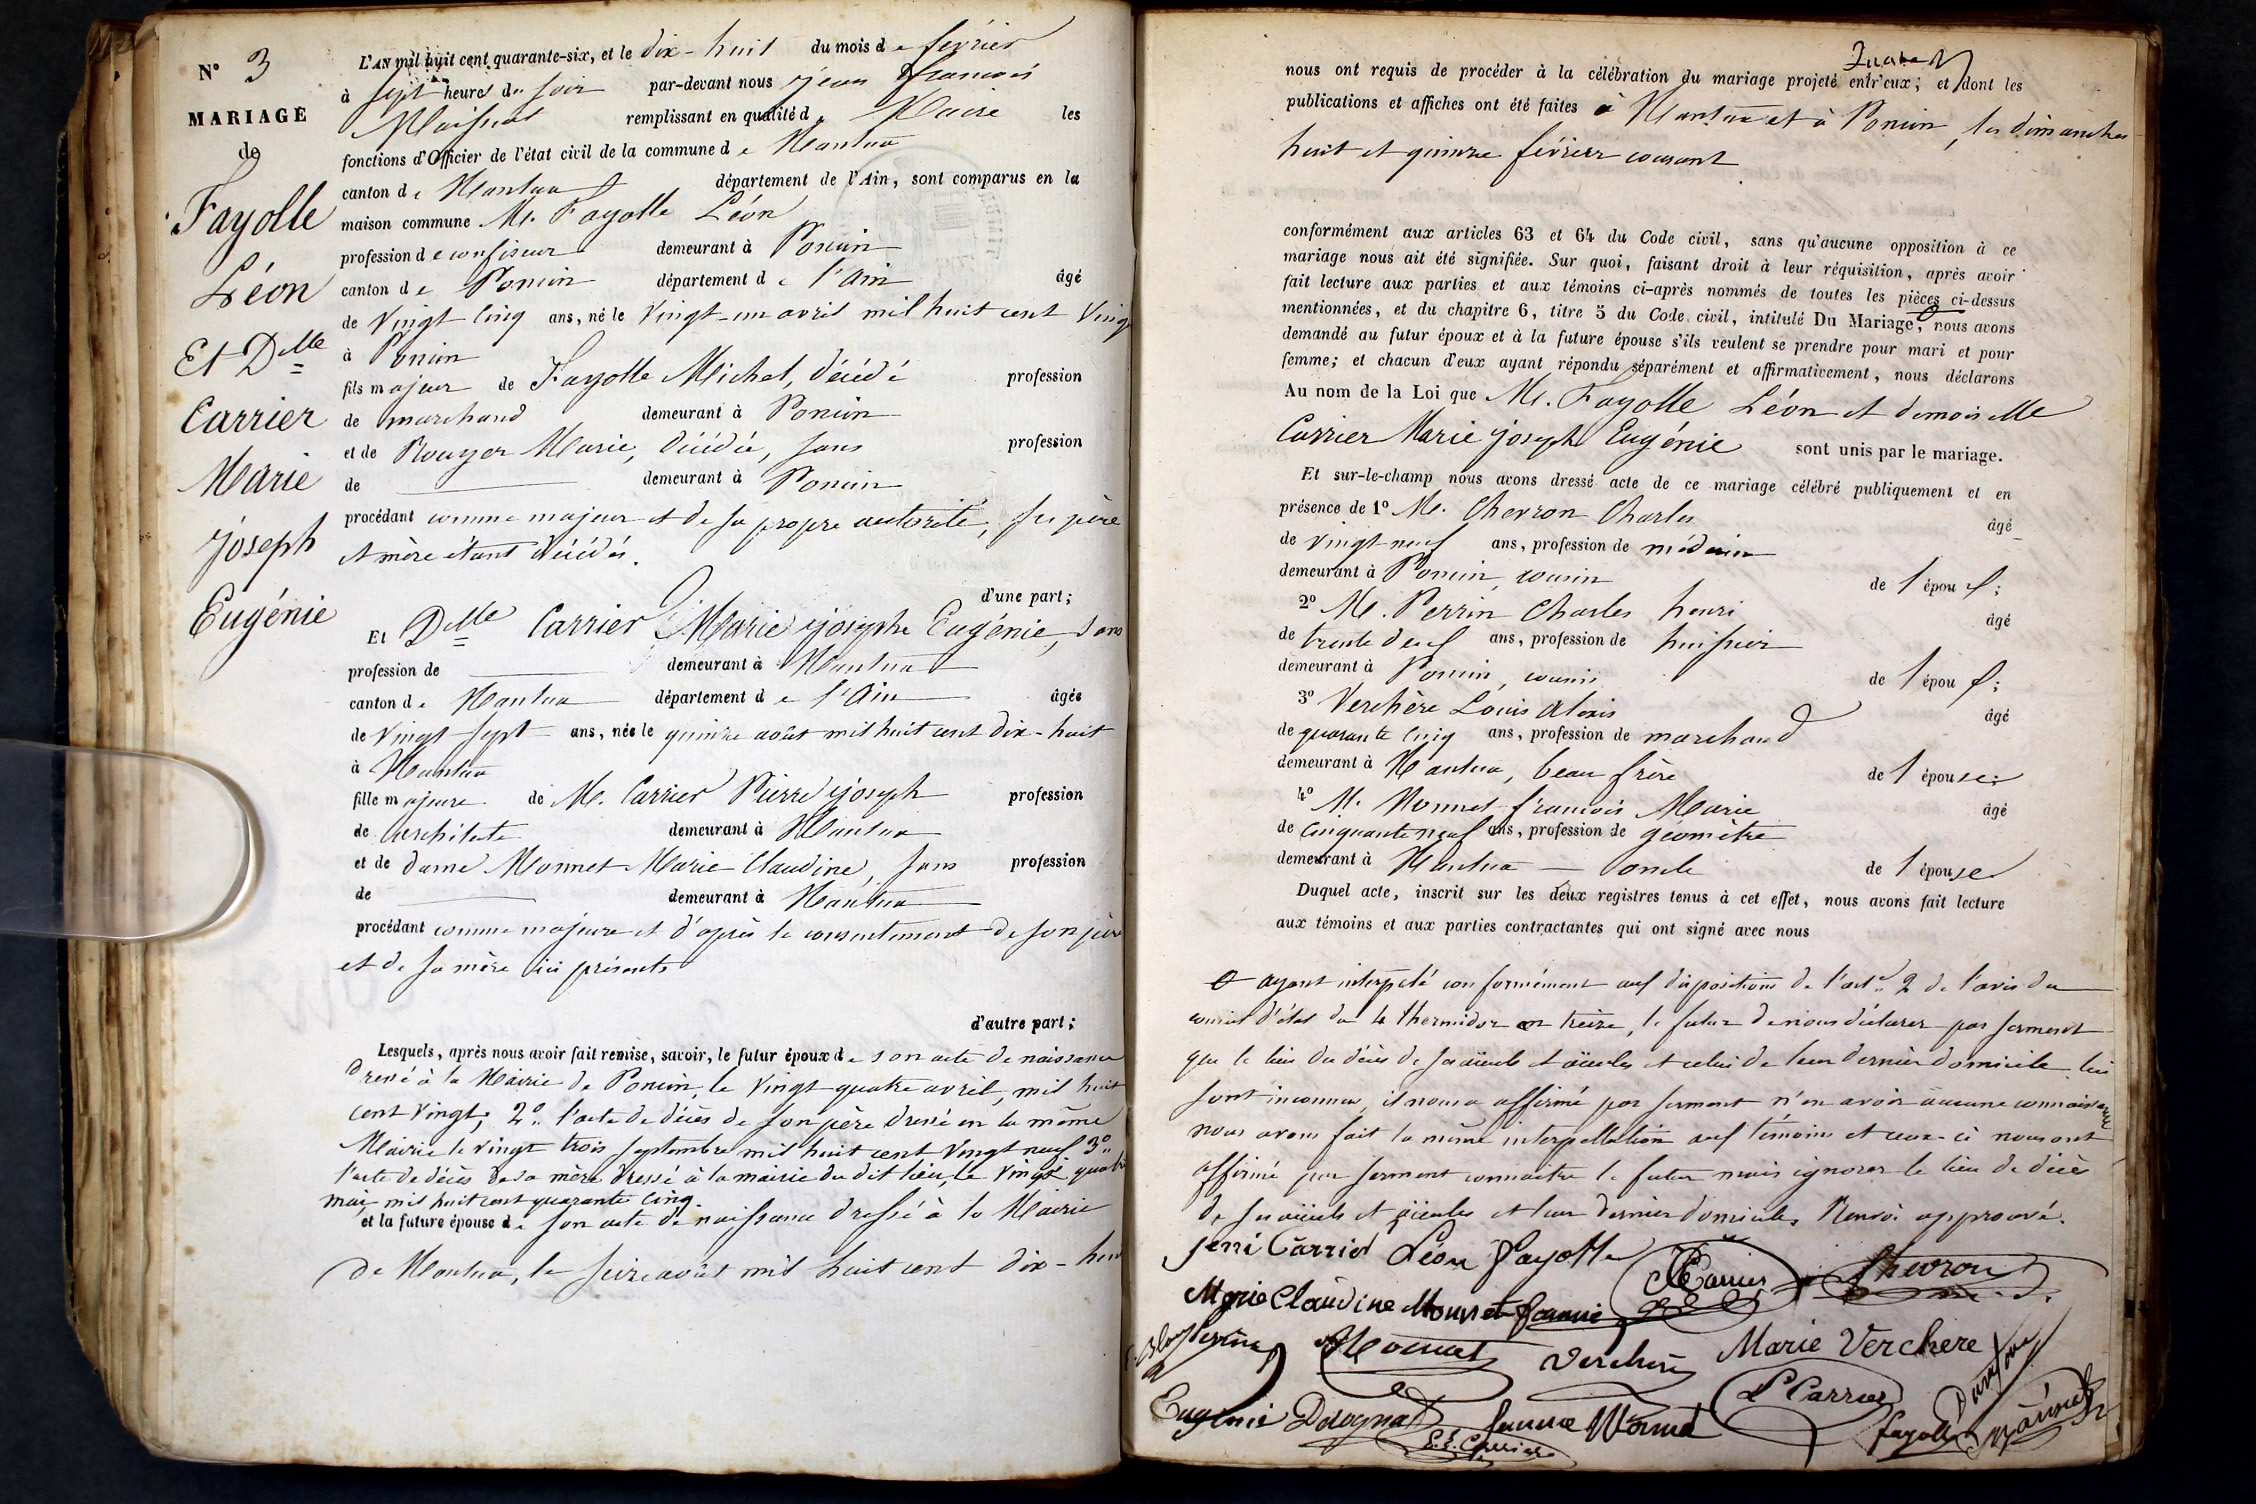 N° 3
MARIAGE
de
Fayolle
Léon
Et Delle
Carrier
Marie
joseph
Eugénie
L'AN mil huit cent quarante-six, et le dix-huit du mois de février
à sept heures du soir par-devant nous jean françois
remplissant en qualité de Maire les
fonctions d'Officier de l'état civil de la commune de Nantua
canton de Nantua département de l'Ain, sont comparus en la
maison commune Mr. Fayolle Léon
profession de confiseur demeurant à Poncin
canton de Poncin département de l'Ain âgé
de Vingt Cinq ans, né le Vingt-un avril mil huit cent Vingt
à Poncin
fils majeur de Fayolle Michel, décédé profession
de marchand demeurant à Poncin
et de Rouyer Marie, décédée, sans profession
de demeurant à Poncin
procédant comme majeur et de sa propre autorité, ses père
et mère étant décédés.
d'une part;
Et Delle Carrier Marie josephe Eugénie, sans
profession de demeurant à Nantua
canton de Nantua département de l'Ain âgée
de Vingt Sept ans, née le quinze août mil huit cent dix-huit
à Nantua
fille majeure de Mr. Carrier Pierre joseph profession
de architecte demeurant à Nantua
et de dame Monnet Marie Claudine, sans profession
de demeurant à Nantua
procédant comme majeure et d'après le consentement de son père
et de sa mère ici présents
d'autre part;
Lesquels, après nous avoir fait remise, savoir, le futur époux de son acte de naissance
dressé à la Mairie de Poncin, le Vingt quatre avril, mil huit
cent Vingt; 2° l'acte de décès de son père dressé en la même
Mairie le vingt trois septembre mil huit cent Vingt neuf 3°
l'acte de décès de sa mère dressé à la mairie du dit lieu, le Vingt quatre
mai, mil huit cent quarante cinq.
et la future épouse de son acte de naissance dressé à la Mairie
de Nantua, le seize août mil huit cent dix-huit
nous ont requis de procéder à la célébration du mariage projeté entr'eux; et dont les
publications et affiches ont été faites à Nantua et à Poncin, les dimanches
huit et quinze février courant
conformément aux articles 63 et 64 du Code civil, sans qu'aucune opposition à ce
mariage nous ait été signifiée. Sur quoi, faisant droit à leur réquisition, après avoir
fait lecture aux parties et aux témoins ci-après nommés de toutes les pièces ci-dessus
mentionnées, et du chapitre 6, titre 5 du Code civil, intitulé Du Mariage, nous avons
demandé au futur époux et à la future épouse s'ils veulent se prendre pour mari et pour
femme; et chacun d'eux ayant répondu séparément et affirmativement, nous déclarons
Au nom de la Loi que Mr. Fayolle Léon et demoiselle
Carrier Marie joseph Eugénie sont unis par le mariage.
Et sur-le-champ nous avons dressé acte de ce mariage célébré publiquement et en
présence de 1° Mr. Chevron Charles âgé
de vingt neuf ans, profession de médecin
demeurant à Poncin, cousin de l'époux;
2° Mr. Perrin Charles henri âgé
de trente deux ans, profession de huissier
demeurant à Poncin, cousin de l'époux;
3° Verchère Louis Alexis âgé
de quarante Cinq ans, profession de marchand
demeurant à Nantua, beau frère de l'épouse;
4° Mr. Monnet françois Marie âgé
de Cinquante neuf ans, profession de géomètre
demeurant à Nantua — oncle de l'épouse
Duquel acte, inscrit sur les deux registres tenus à cet effet, nous avons fait lecture
aux témoins et aux parties contractantes qui ont signé avec nous
ayant interpelé conformément aux dispositions de l'art. 2 de l'avis du
conseil d'état du 4 thermidor an treize, le futur de nous déclarer par serment
que le lieu du décès de ses aïeuls et aïeules et celui de leur dernier domicile lui
sont inconnus, il nous a affirmé par serment n'en avoir aucune connaissance
nous avons fait la même interpellation aux témoins et ceux-ci nous ont
affirmé par serment connaître le futur mais ignorer le lieu de décès
de ses aïeuls et aïeules et leur dernier domiciles Renvoi approuvé.
jenni Carrier Léon fayolle Carrier Chevron
Marie Claudine Monnet femme
Monnet Verchère Marie Verchere
Eugénie femme P Carrier
fayolle